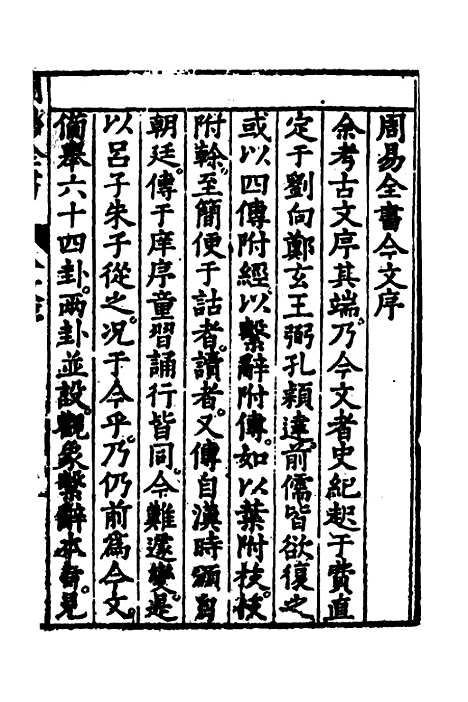 周易全書今文序
余考古文序其端乃今文者史紀起于費直
定于劉向鄭玄王弼孔穎達前儒皆欲復之
或以四傳附經以繫辭附傳如以葉附枝枝
附榦至簡便于詁者讀者又傳自漢時頒自
朝廷傳于庠序童習誦行皆同今難遽變是
以呂子朱子從之况于今乎乃仍前為今文
備舉六十四卦兩卦並設觀象繫辭本旨見